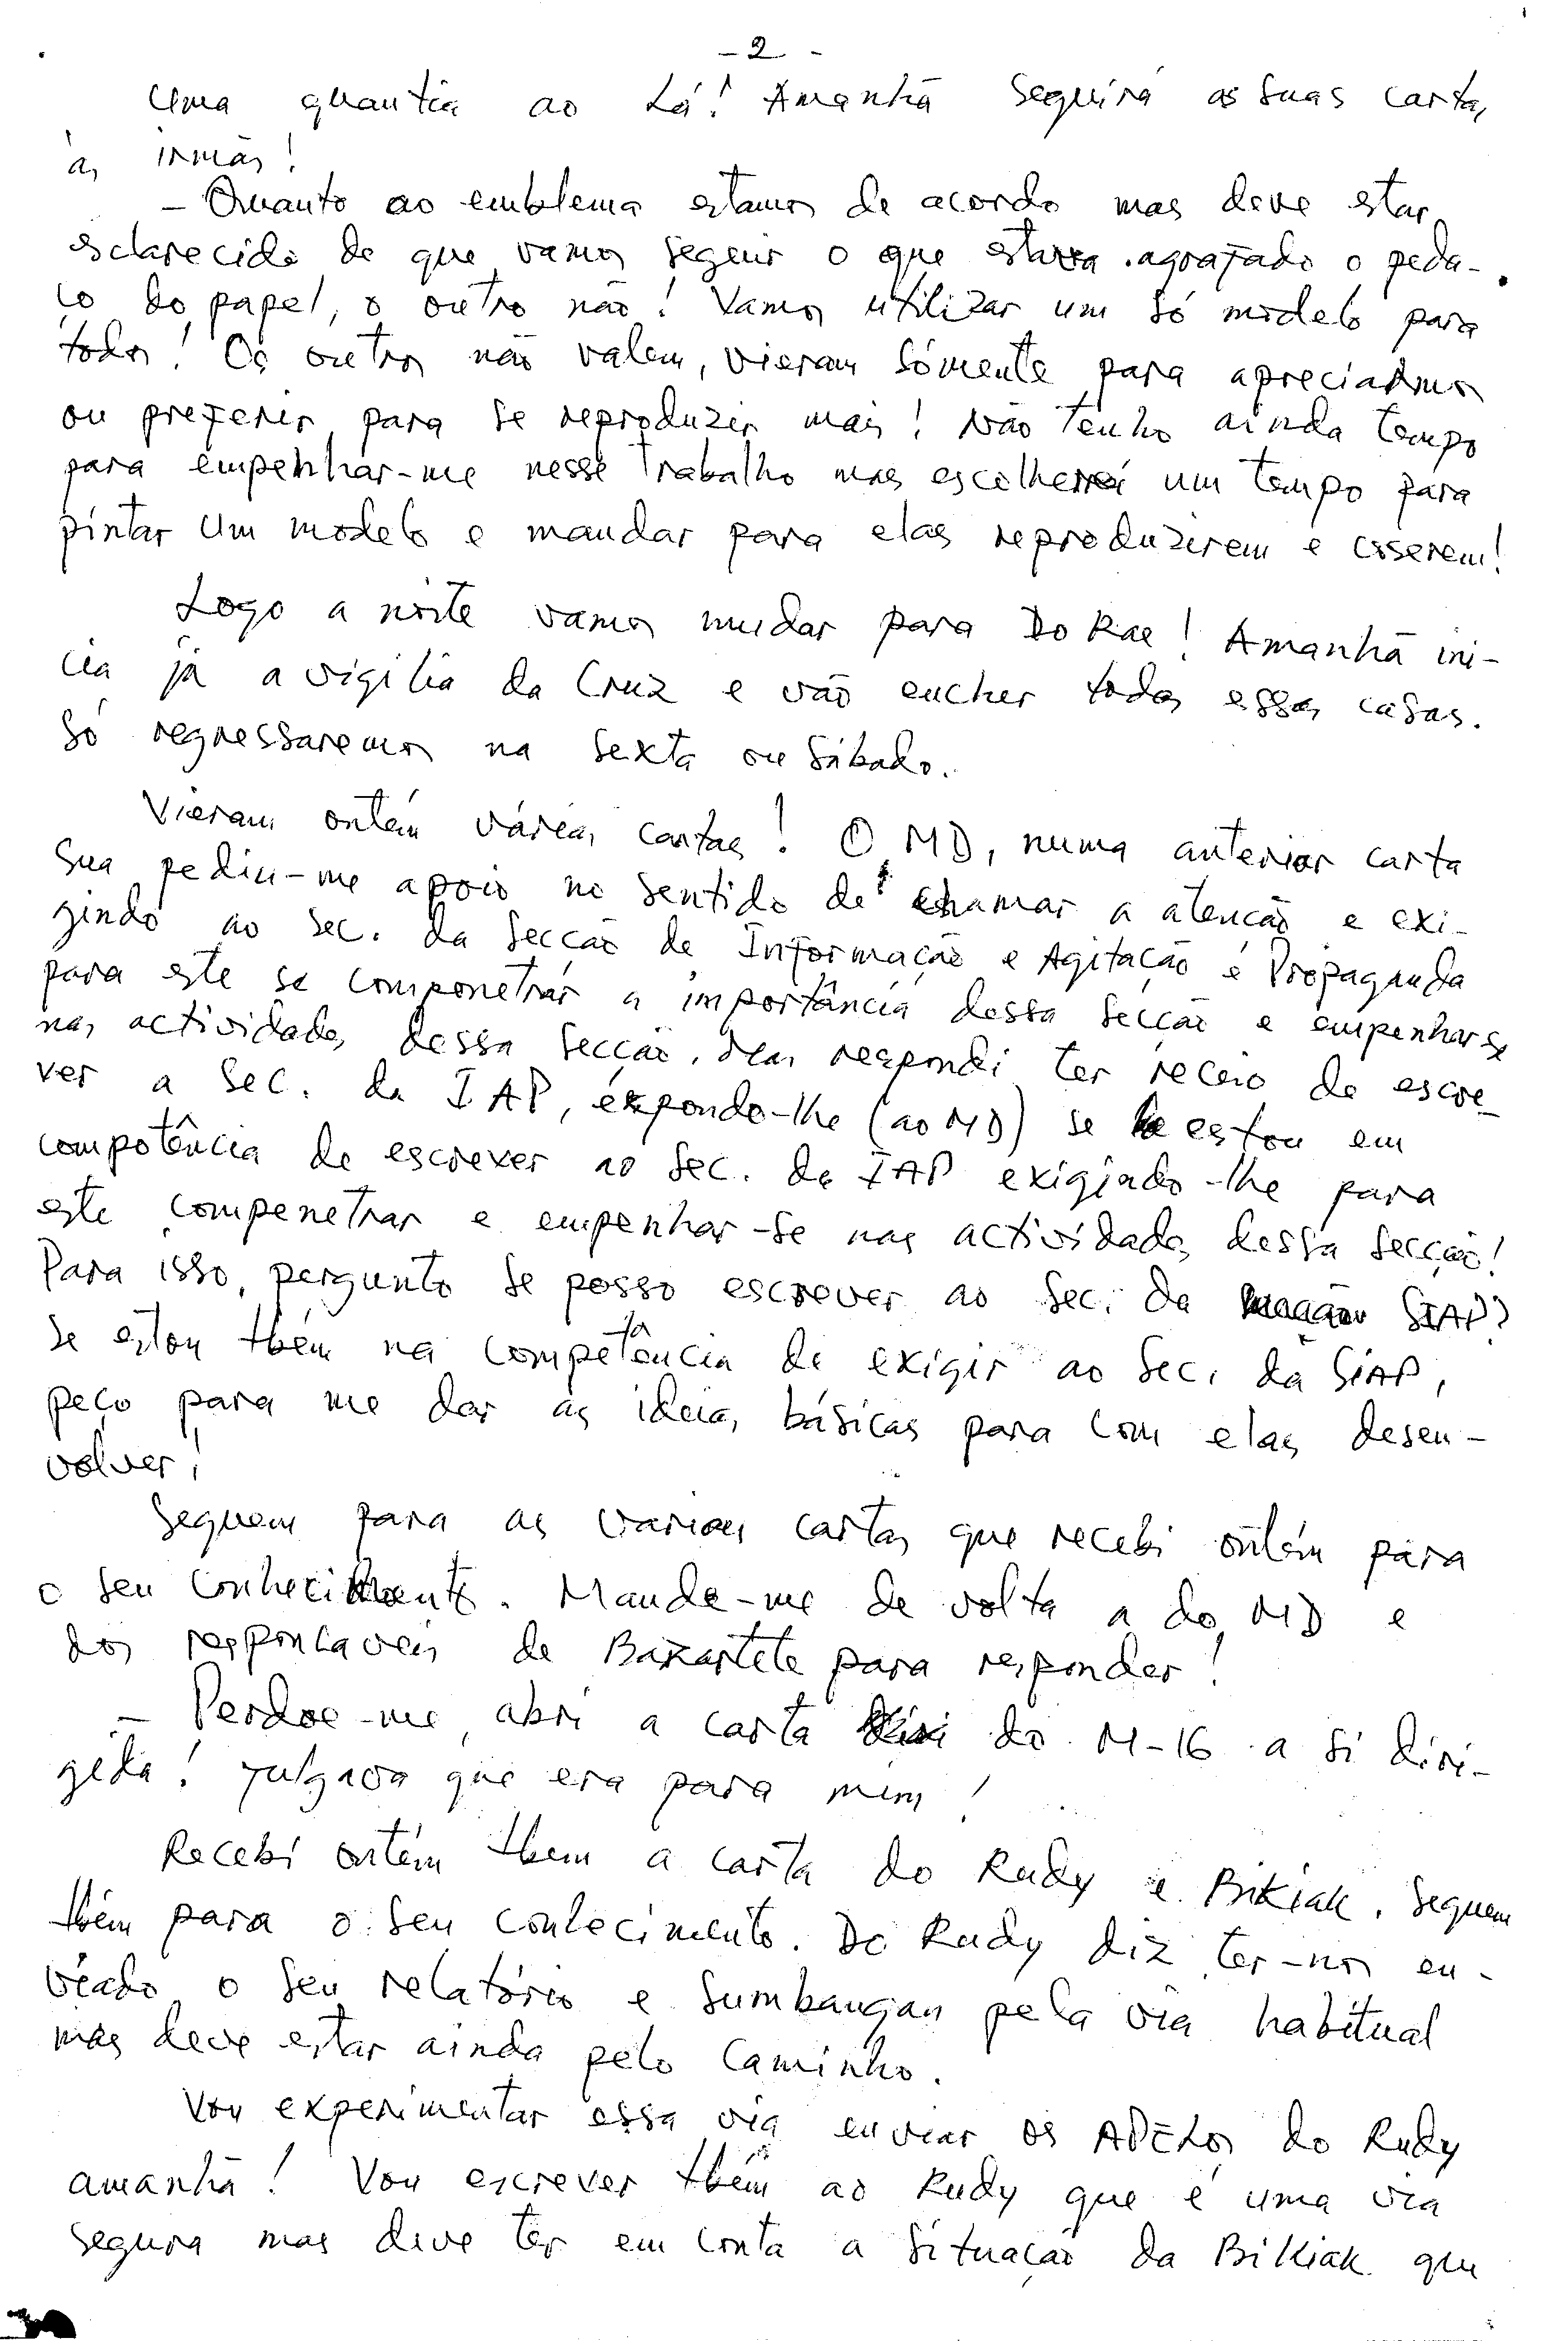 - 2 -
Uma quantia ao Lá! Amanhã seguirá as suas cartas
às irmãs!
- Quanto ao emblema estamos de acordo mas deve estar
esclarecido de que vamos seguir o que estava agrafado o peda-
ço do papel, o outro não! Vamos utilizar um só modelo para
todos! Os outros não valem, vieram sómente para apreciarmos
ou preferir para se reproduzir mais! Não tenho ainda tempo
para empenhar-me nesse trabalho mas escolherei um tempo para
pintar um modelo e mandar para elas reproduzirem e coserem!
Logo a noite vamos mudar para Do Rae! Amanhã ini-
cia já a vigília da Cruz e vão encher todas essas casas.
Só regressaremos na sexta ou sábado.
Vieram ontém várias cartas! O MD, numa anterior carta
sua pediu-me apoio no sentido de chamar a atencão e exi-
gindo ao Sec. da Secção de Informação e Agitação e Propaganda
para este se componetrár a importância dessa secção e empenhar se
nas actividades dessa secção. Mas respondi ter receio de escre-
ver a Sec. da IAP, expondo-lhe (ao MD) se estou em
compotência de escrever ao Sec. da IAP exigindo-lhe para
este compenetrar e empenhar-se nas actividades dessa secção!
Para isso, pergunto se posso escrever ao Sec. da SIAP?
Se estou tbém na competência de exigir ao Sec. da SIAP,
peço para me dar as ideias básicas para com elas desen-
volver!
Seguem para as varias cartas que recebi ontém para
o seu conhecimento. Mande-me de volta a do MD e
dos responsaveis de Bazartete para responder!
- Perdoe-me, abri a carta do M-16 a si diri-
gida! Julgava que era para mim!
Recebi ontém tbem a carta do Rudy e Bikiak. Seguem
tbém para o seu conhecimento. Do Rudy diz ter-nos en-
viado o seu relatório e sumbangan pela via habitual
mas deve estar ainda pelo caminho.
Vou experimentar essa via enviar os APELOS do Rudy
amanhã! Vou escrever tbém ao Rudy que é uma via
segura mas deve ter em conta a situação da Bikiak que